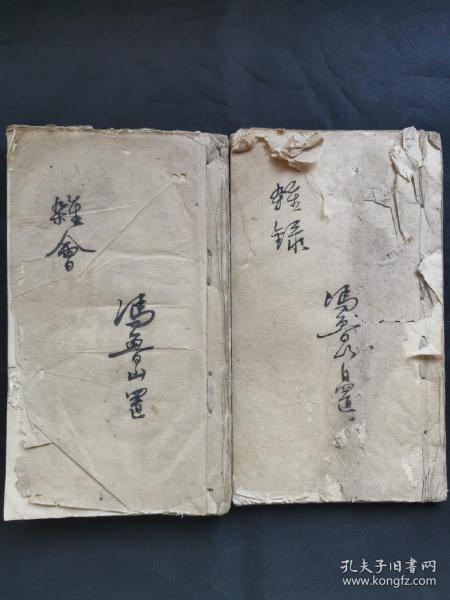 雜會
馮魯山置
雜錄
馮魯山自置
孔夫子旧书网
www.kongfz.com